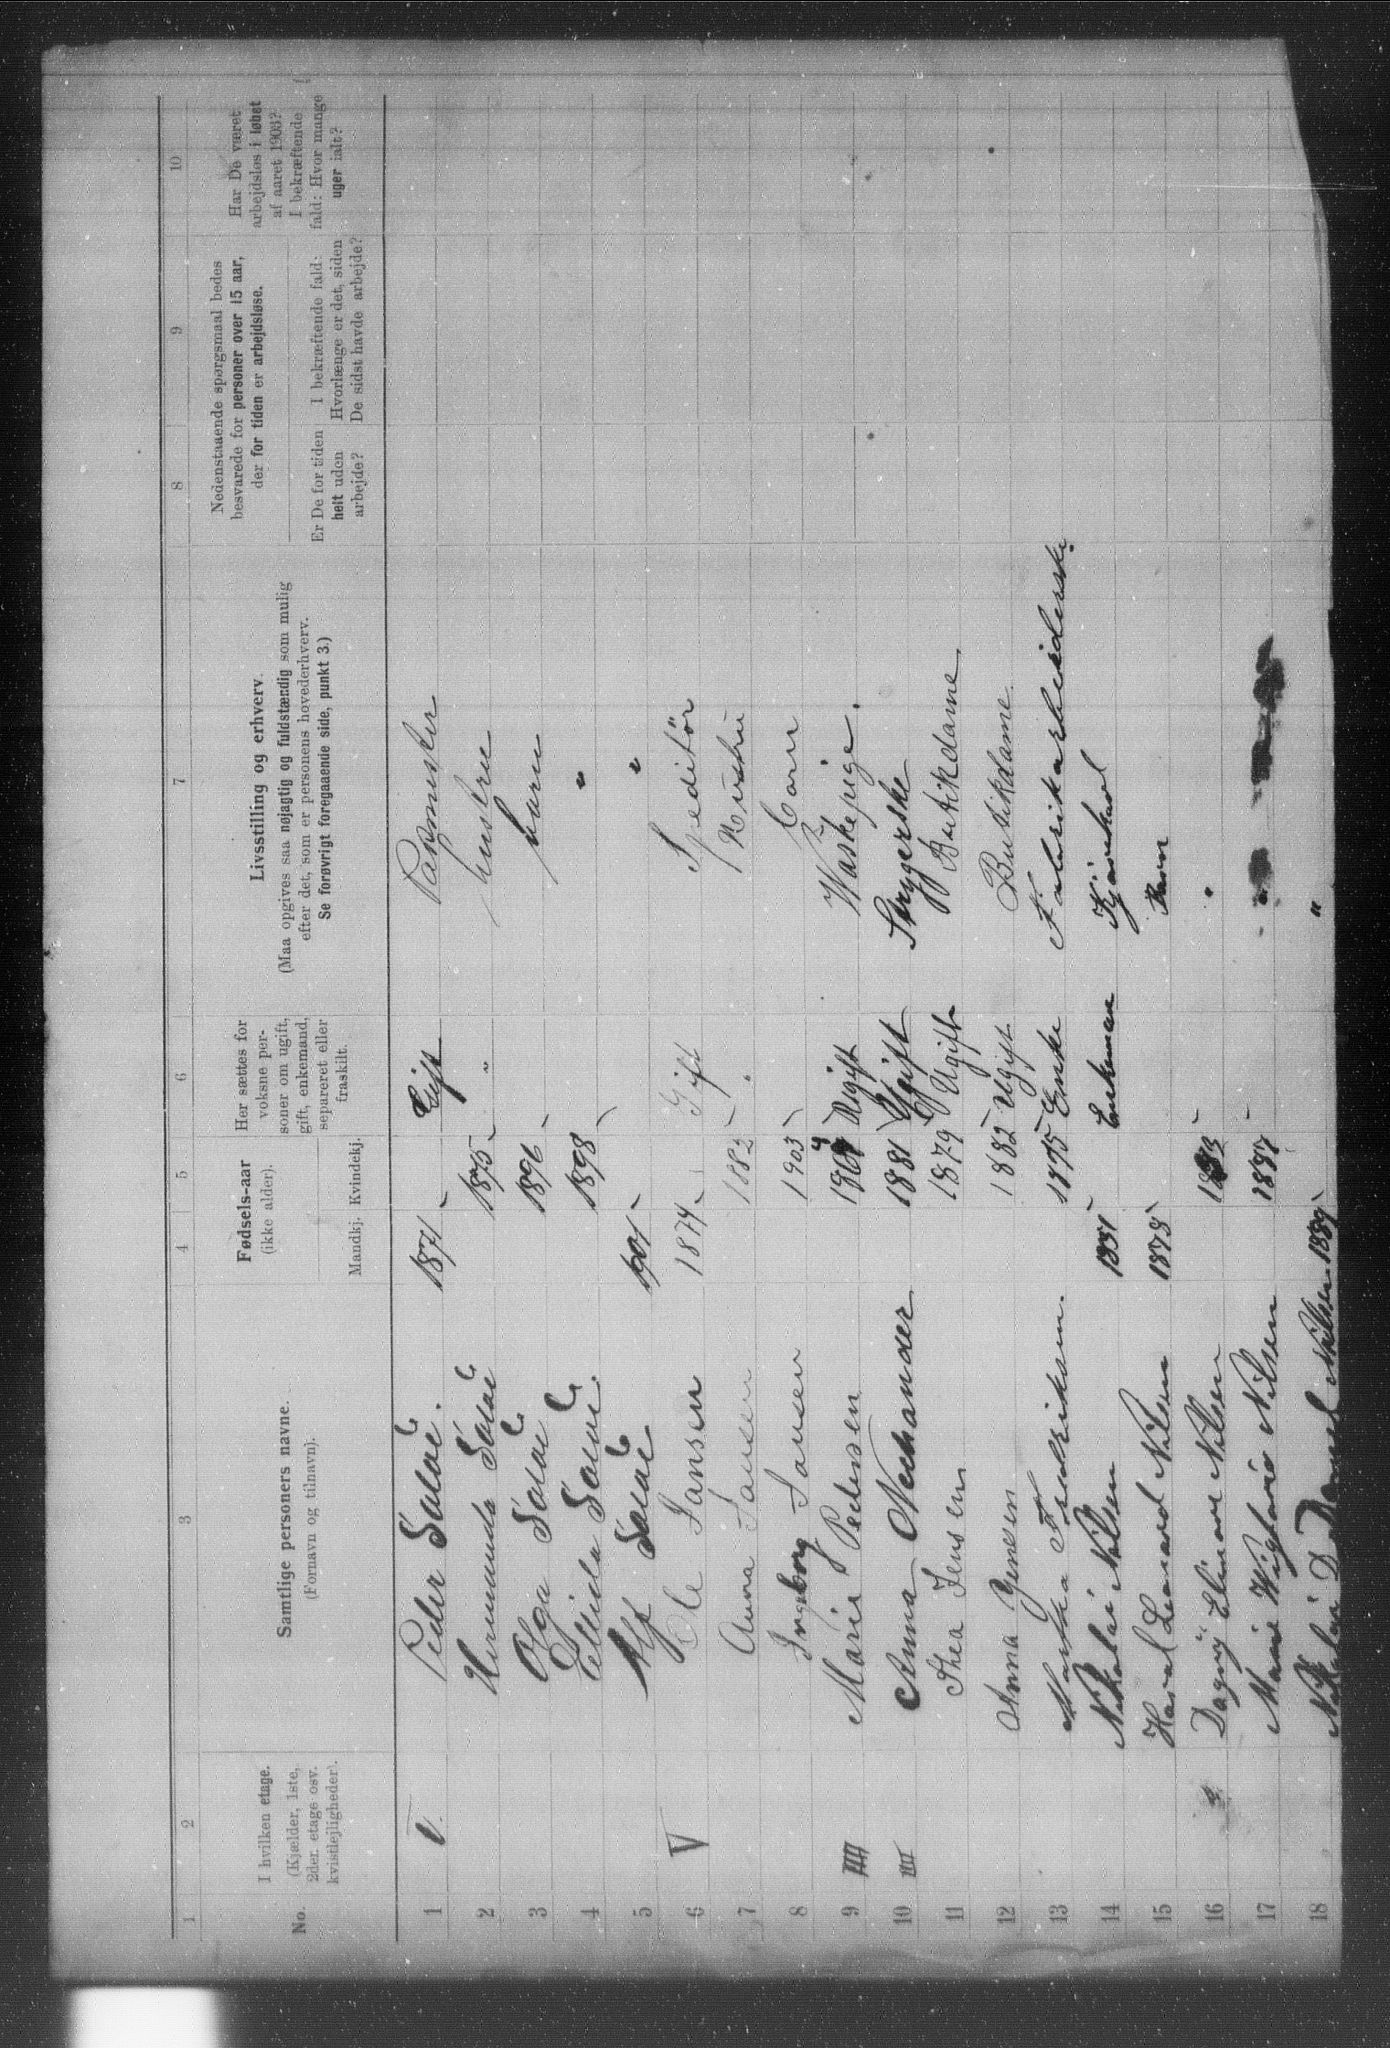 1 2 3 4 5 6 7 8 9 10
No.
I hvilken etage.
(Kjælder, 1ste,
2den etage osv.
kvistlejligheder).
Samtlige personers navne.
(Fornavn og tilnavn).
Fødsels-aar
(ikke alder).
Mandkj. Kvindekj.
Her sættes for
voksne per-
soner om ugift,
gift, enkemand,
separeret eller
fraskilt.
Livsstilling og erhverv.
(Maa opgives saa nøjagtig og fuldstændig som mulig
efter det, som er personens hovederhverv.
Se forøvrigt foregaaende side, punkt 3.)
Nedenstaaende spørgsmaal bedes
besvarede for personer over 15 aar,
der for tiden er arbejdsløse.
Er De for tiden
helt uden
arbejde?
I bekræftende fald:
Hvorlænge er det, siden
De sidst havde arbejde?
Har De været
arbejdsløs i løbet
af aaret 1903?
I bekræftende
fald: Hvor mange
uger ialt?
1 V. Peder 1871 Gift
2 1875 " Hustru
3 Olga 1896 barn
4 1898 "
5 Alf 1901 "
6 V Ole Jansen 1874 Gift Speditör
7 Anna Jansen 1882 " Hustru
8 Ingeborg Jansen 1903 barn
9 IIII Marie Pedersen Ugift Vaskepige.
10 III Anna Nechander 1881 Ugift Strygerske
11 Thea Jensen 1879 Ugift Butikdame.
12 Anna Jensen 1882 Ugift Butikdame.
13 Fredriksen. 1875 Enke Fabrikarbeiderske
14 Nikolai Nilsen 1851 Enkeman
15 Leonard Nilsen 1878 Barn
16 Dagny Nilsen "
17 Marie Nilsen "
18 Nikolai D Daniel Nilsen 1889 "